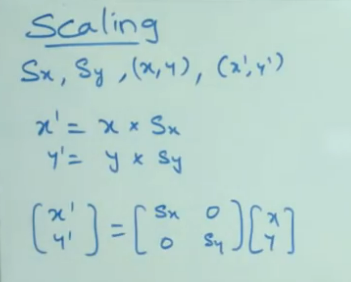 Scaling
Sx, Sy, (x,y), (x',y')
x' = x × Sx
y' = y × Sy
(x' y') = [Sx 0 0 Sy] [x y]